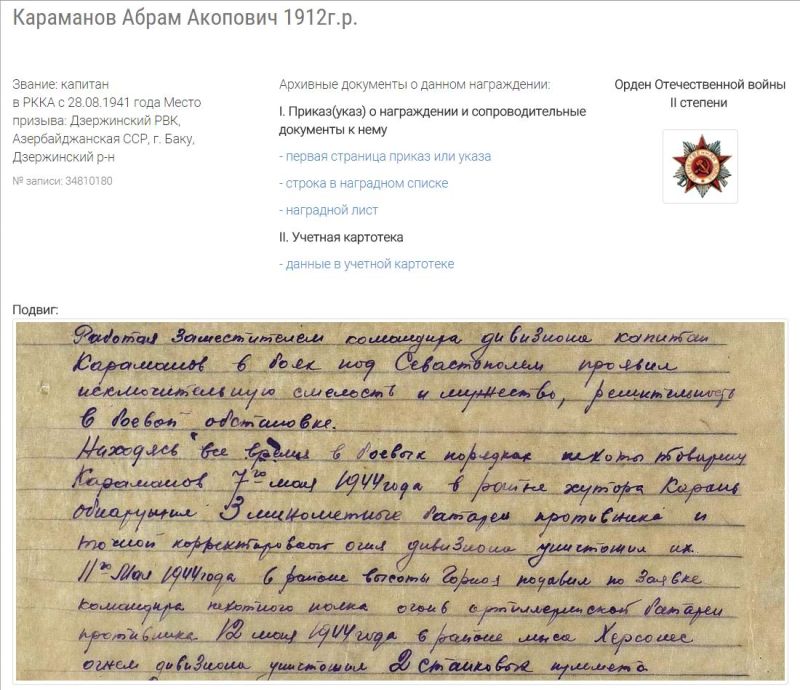 Караманов Абрам Акопович 1912г.р.
Звание: капитан
в РККА с 28.08.1941 года Место
призыва: Дзержинский РВК,
Азербайджанская ССР, г. Баку,
Дзержинский р-н
№ записи: 34810180
Архивные документы о данном награждении:
I. Приказ(указ) о награждении и сопроводительные
документы к нему
- первая страница приказ или указа
- строка в наградном списке
- наградной лист
II. Учетная картотека
- данные в учетной картотеке
Орден Отечественной войны
II степени
Подвиг:
Работая Заместителем командира дивизиона капитан
Караманов в боях под Севастополем проявил
исключительную смелость и мужество, решительность
в боевой обстановке.
Находясь все время в боевых порядках пехоты товарищ
Караманов 7го мая 1944 года в районе хутора Карань
обнаружил 3 минометные батареи противника и
точной корректировкой огня дивизиона уничтожил их.
11го Мая 1944 года в районе высоты Горная подавил по Заявке
командира пехотного полка огонь артиллерийской батареи
противника. 12 мая 1944 года в районе мыса Херсонес
огнем дивизиона уничтожил 2 станковых пулемета